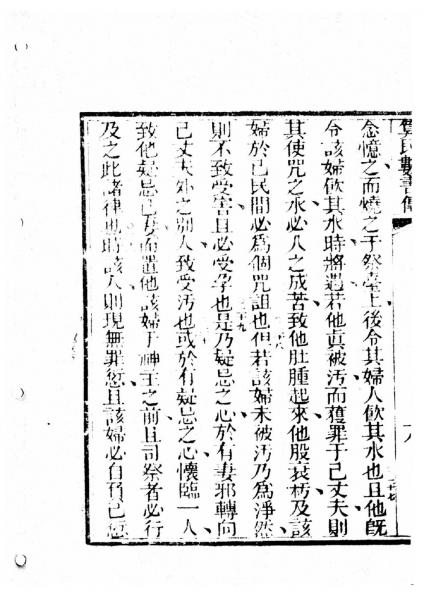 算民數書傳
念憶之而燒之于祭臺上後令其婦人飲其水也且他既
令該婦飲其水時將遇若他真被污而獲罪于己丈夫則
其使咒之水必入之成苦致他肚腫起來他股衰朽及該
婦於己民間必為個咒詛也但若該婦未被污乃為淨然
則不致受害且必受孕也是乃疑忌之心於有妻邪轉向
己丈夫外之別人致受污也或於有疑忌之心懷臨一人
致他疑忌己妻而置他該婦于神主之前且司祭者必行
及之此諸律也時該人則現無罪愆且該婦必自負己愆